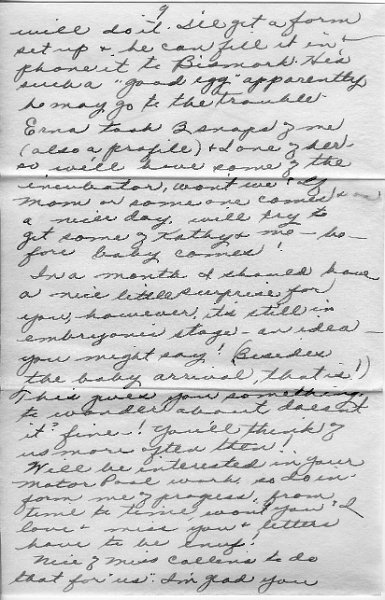 9
will do it. I'll get a form
set up & he can fill it in &
phone it to Bismark. He's
such a "good egg" apparently
he may go to the trouble.
Erna took 3 snaps of me
(also a profile) & I one of her
so we'll have some of the
incubator, won't we! If
Mom or some one comes & on
a nicer day, will try to
get some of Kathy & me - be-
fore baby comes!
In a month I should have
a nice little surprise for
you, however, its still in
embryonic stage - an idea -
you might say! (Besides
the baby arrival, that is!)
This gives you something
to wonder about doesn't
it? fine! You'll think of
us more often then!
Will be interested in your
Motor Pool work, so do in-
form me of progess, from
time to time, won't you? I
love & miss you & letters
have to be enuf!
Nice of Miss Collins to do
that for "us". I'm glad you